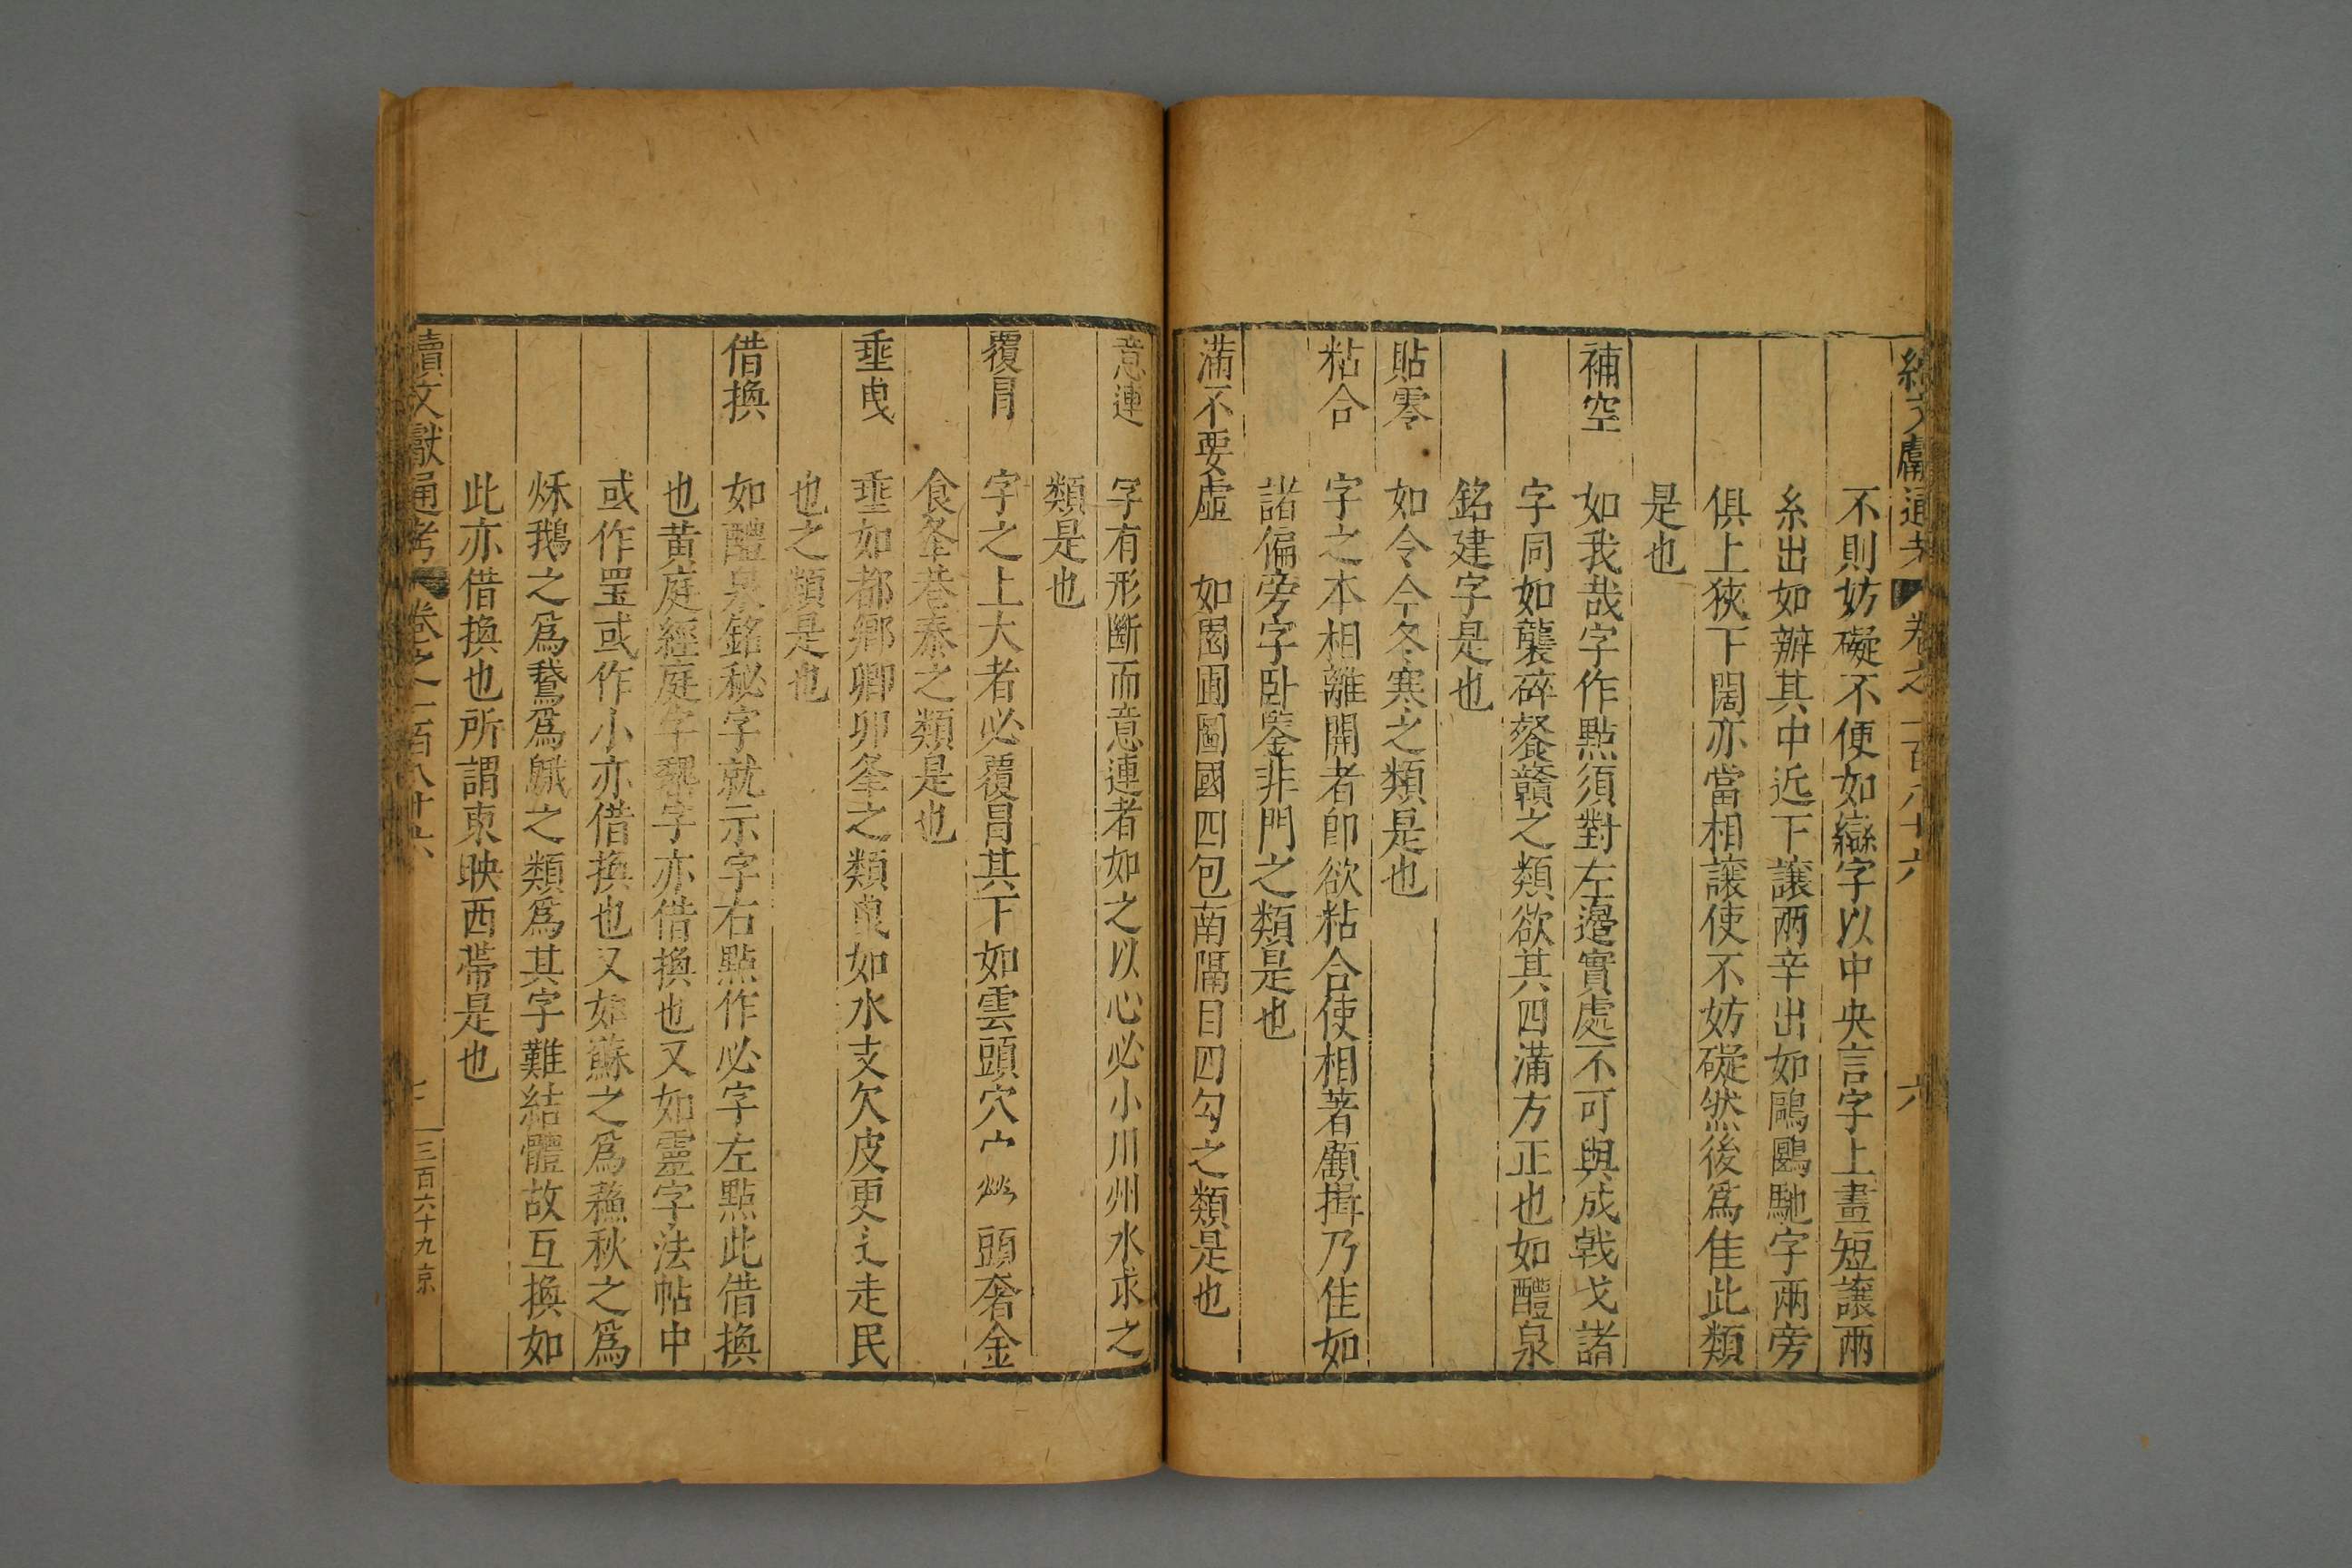 續文獻通考 卷之一百八十六 六
不則妨礙不便如䜌字以中央言字上畫短讓兩
糸出如辦其中近下讓兩辛出如鷗鷗馳字兩旁
俱上狹下闊亦當相讓使不妨礙然後爲佳此類
是也
補空 如我哉字作點須對左邊實處不可與成戟戈諸
字同如襲碎餐贛之類欲其四滿方正也如醴泉
銘建字是也
貼零 如令今冬寒之類是也
粘合 字之本相離開者卽欲粘合使相著顧揖乃佳如
諸偏旁字卧鍳非門之類是也
滿不要虛 如園圃圖國四包南隔目四勾之類是也
意連 字有形斷而意連者如之以心必小川州水求之
類是也
覆冒 字之上大者必覆冒其下如雲頭穴宀 頭奢金
食夅巷泰之類是也
垂曳 垂如都鄉卿卯夅之類曳如水支欠皮更辶走民
也之類是也
借換 如醴泉銘秘字就示字右點作必字左點此借換
也黃庭經庭字 字亦借換也又如靈字法帖中
或作罣或作小亦借換也又如蘇之爲蘓秋之爲
秌鵝之爲䳘爲䳗之類爲其字難結體故互換如
此亦借換也所謂東映西帶是也
續文獻通考 卷之一百八十六 七 三百六十九 京